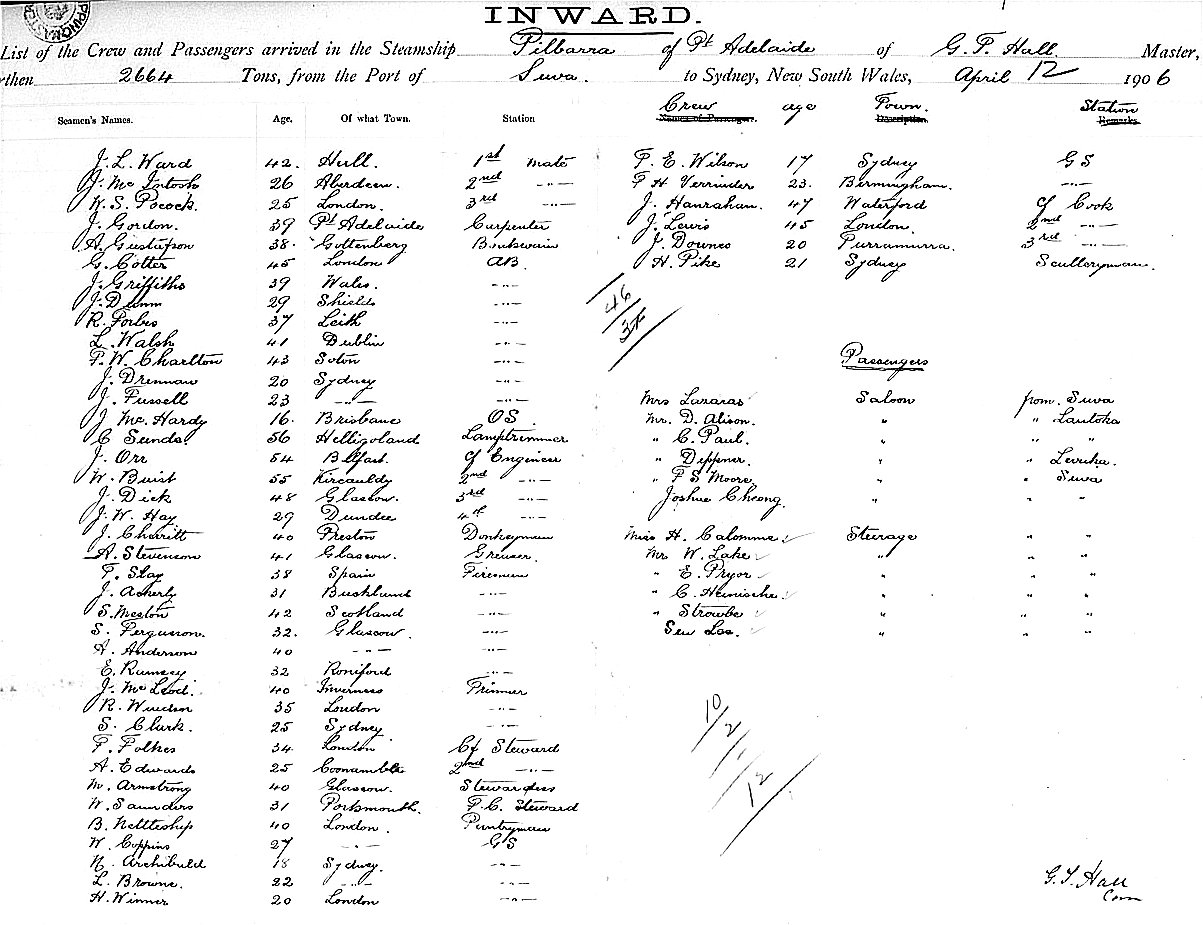 INWARD.
List of the Crew and Passengers arrived in the Steamship Pilbarra of Pt Adelaide of G. T. Hall Master,
then 2664 Tons, from the Port of Suva. to Sydney, New South Wales, April 12 1906
Seamen's Names. Age. Of what Town. Station
J. L. Ward 42. Hull. 1st mate
J. Mc Intosh 26 Aberdeen. 2nd -"-
W. S. Pocock. 25 London. 3rd -"-
J. Gordon. 39 Pt Adelaide Carpenter
A. Gustafson 38. Gottenberg
G. Cotter 45 London AB.
J. Griffiths 39 Wales. -"-
J. Dunn 29 Shields -"-
R. Forbes 37 Leith -"-
L. Walsh 41 Dublin -"-
F. W. Charlton 43 Soton -"-
J. Drennan 20 Sydney -"-
J. Fussell 23 -"- -"-
J. Mc. Hardy 16. Brisbane OS.
C Sunds 56 Heligoland Lamptrimmer
J. Orr 54 Belfast. Cf Engineer
W. Buist 55 Kircauldy 2nd -"-
J. Dick 48 Glascow. 3rd -"-
J. W. Hay 29 Dundee 4th -"-
J. Charritt 40 Preston Donkeyman
A. Stevenson 41 Glascow. Greaser.
F. Slay 38 Spain Fireman
J. 31 -"-
S. Meston 42 Scotland -"-
S. Ferguson. 32. Glascow. -"-
A. Anderson 40 -"- -"-
E. Ramsey 32 -"-
J. Mc Leod. 40 Inverness Trimmer
R. 35 London -"-
S. Clark. 25 Sydney -"-
F. Folkes 34 London Cf Steward
A. Edwards 25 Coonamble 2nd -"-
M. Armstrong 40 Glascow. Stewardess
W. Saunders 31 Portsmouth. F. C. Steward
B. Nettleship 40 London. Pantryman
W. Coppins 27 -"- GS
N. Archibald 18 Sydney. -"-
L. Browne. 22 -"- -"-
H. Winner 20 London -"-
Crew age Town. Station
Names of Passenger. Description. Remarks.
F. E. Wilson 17 Sydney GS
F H Verrinder 23. Birmingham. -"-
J. Hanrahan. 47 Waterford Cf Cook
J. Lewis 45 London. 2nd -"-
J. Downes 20 Purramurra. 3rd -"-
H. Pike 21 Sydney Sculleryman.
46
Passengers
Mrs Lazarus Saloon from Suva
Mr. D. Alison. " " Lautoka
" C. Paul. " " "
" Deppner. " " Levuka.
" F S Moore " " Suva
Joshua Cheong " " "
Miss H. Calomme Steerage " "
Mr W. Lake " " "
" E. Pryor " " "
" C. Heinische " " "
" Strowbe " " "
Sew Los. " " "
10/2/1/12
G. T. Hall
Com